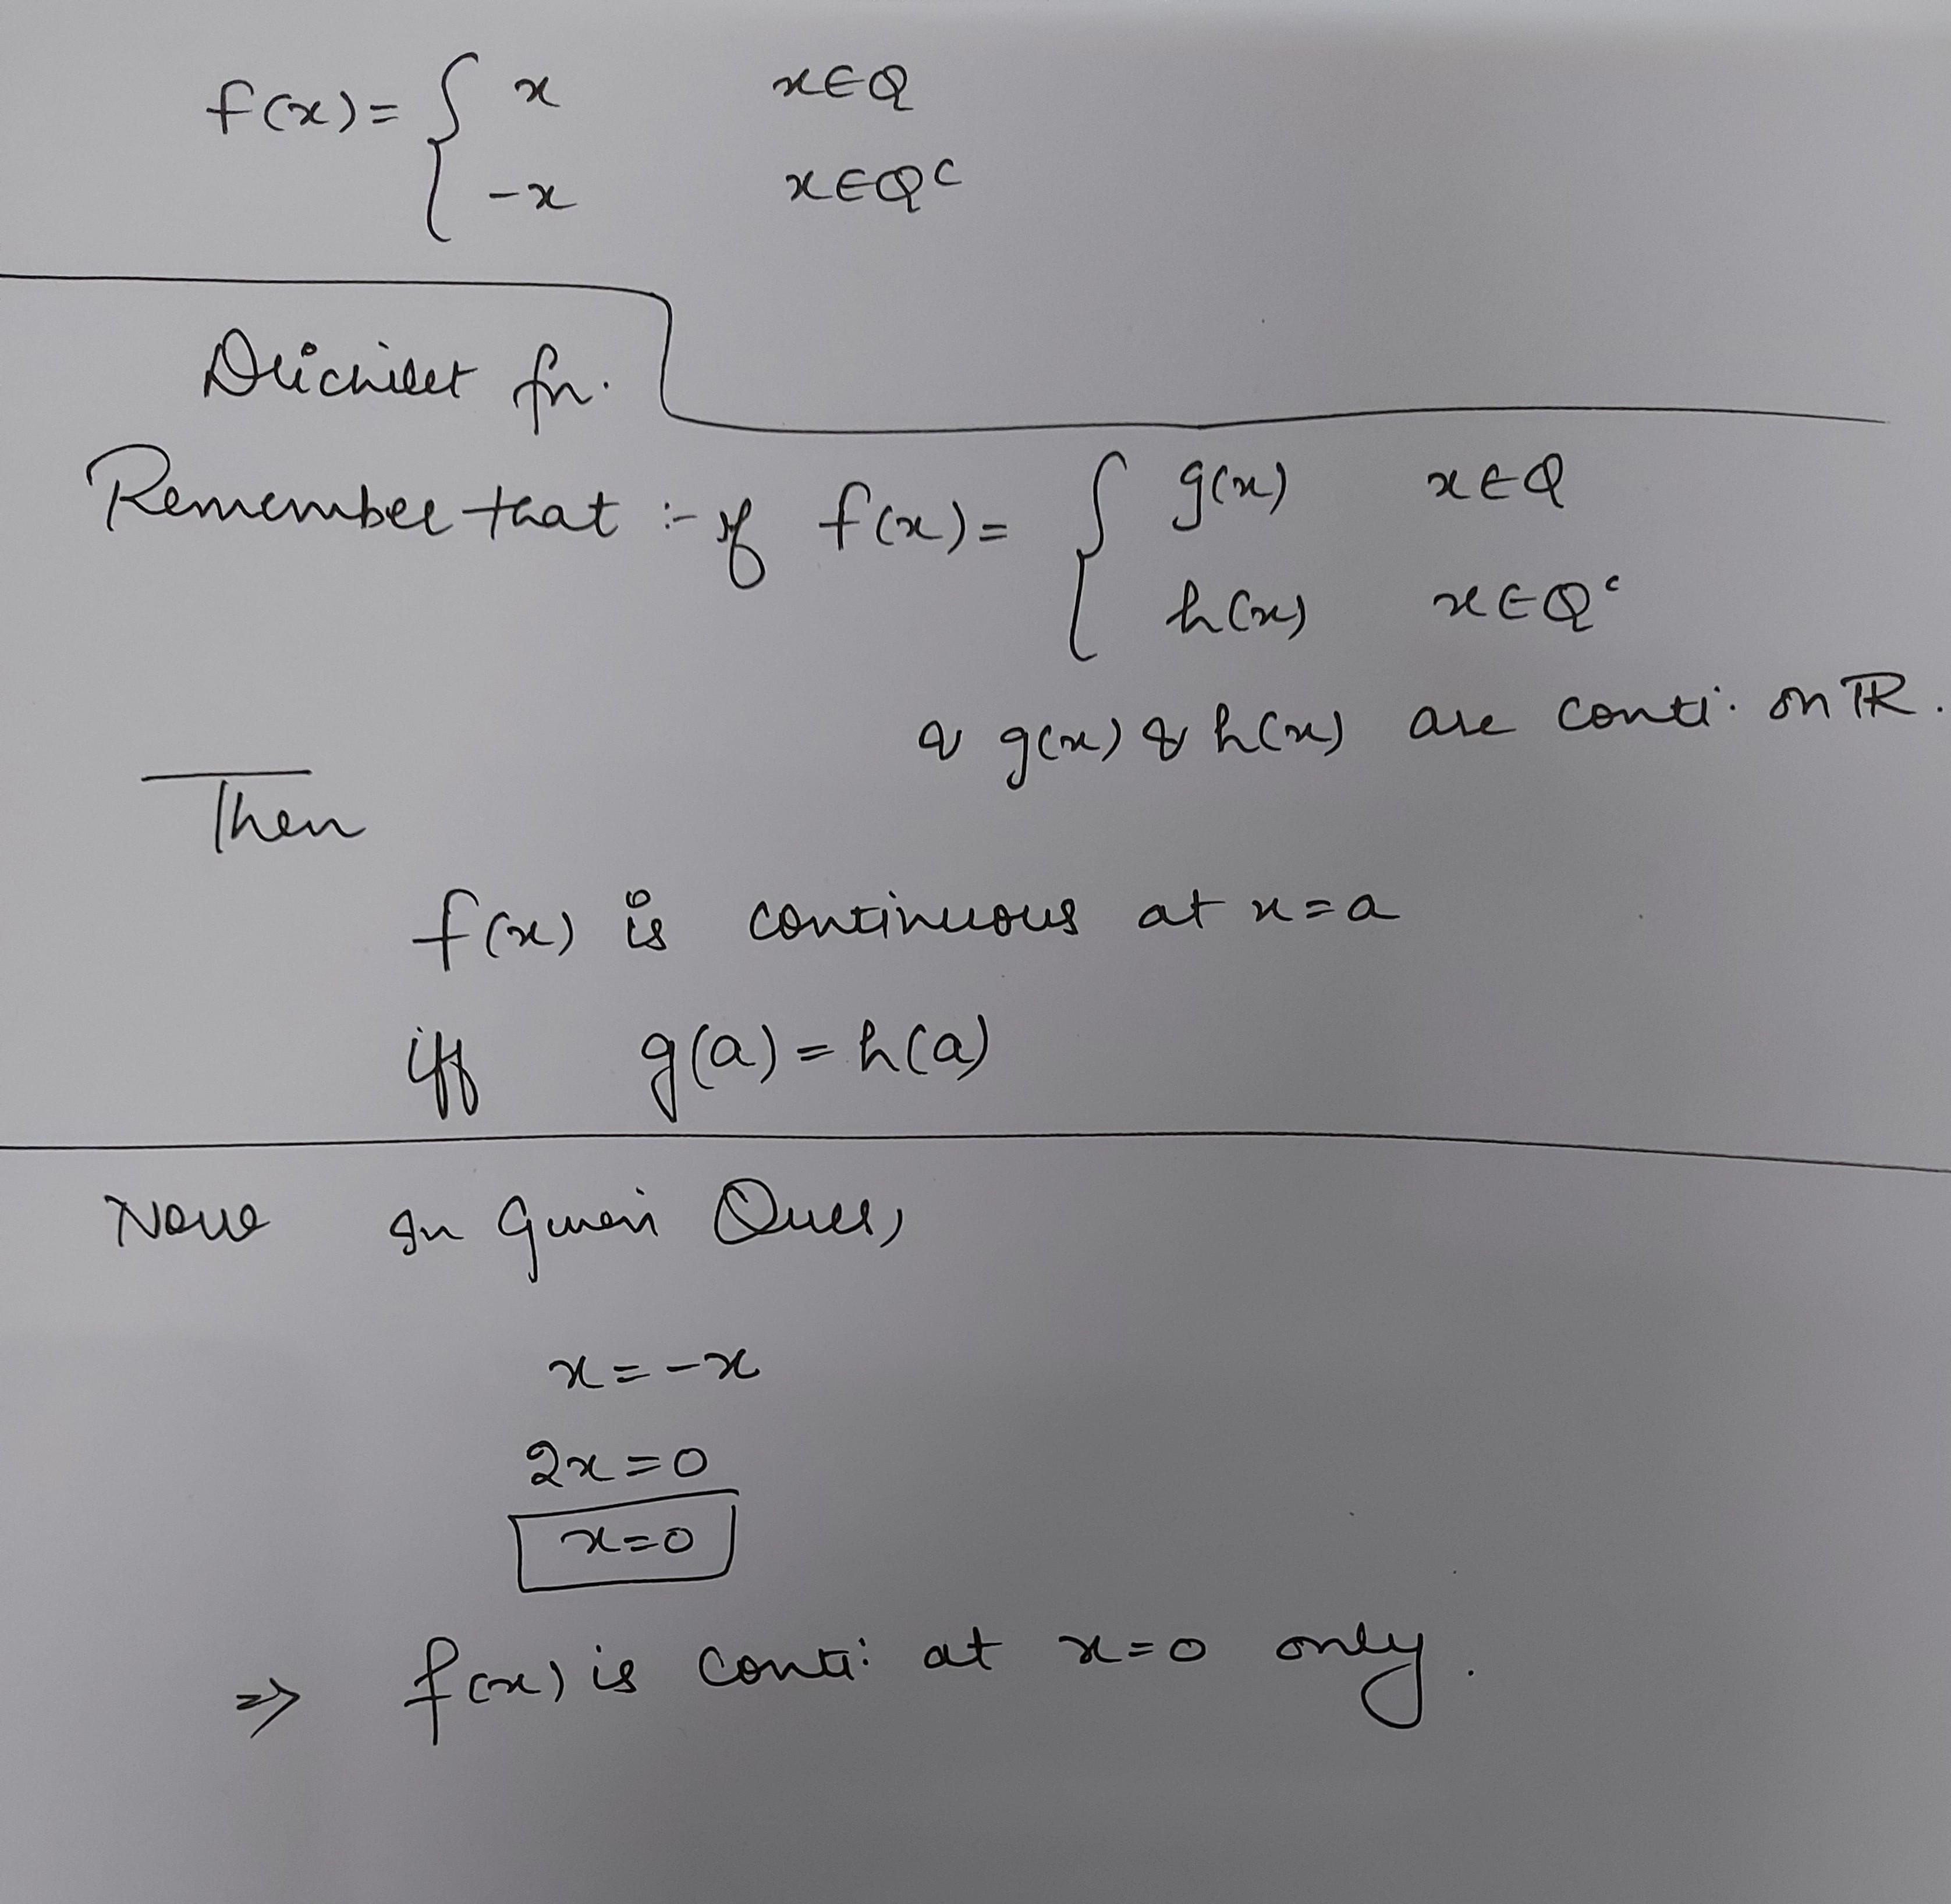 f(x)= { x x∈Q
-x x∈Qᶜ
Dirichlet fn.
Remember that :- if f(x)= { g(x) x∈Q
h(x) x∈Qᶜ
& g(x) & h(x) are conti. on ℝ.
Then
f(x) is continuous at x=a
iff g(a)=h(a)
Now In Given Ques,
x=-x
2x=0
x=0
⇒ f(x) is conti. at x=0 only.